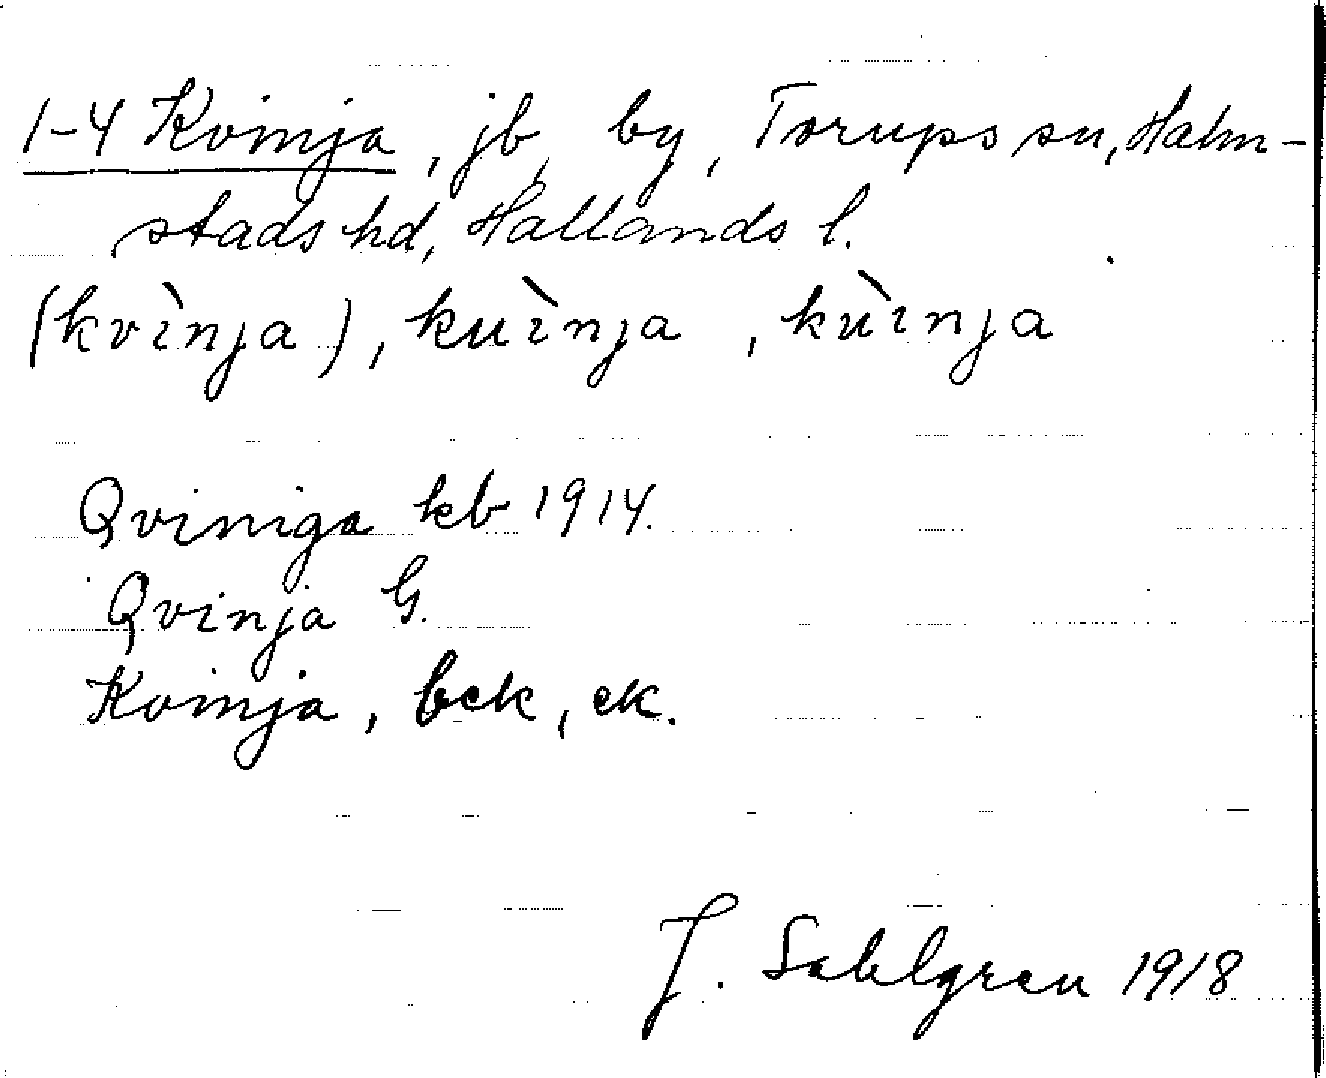 1-4 Kvinja, jb, by, Torups sn, Halm-
stads hd, Hallands l.
(kvìnja), kuìnja, kùinja
Qviniga kb 1914.
Qvinja G.
Kvinja, bek, ek.
J. Sahlgren 1918